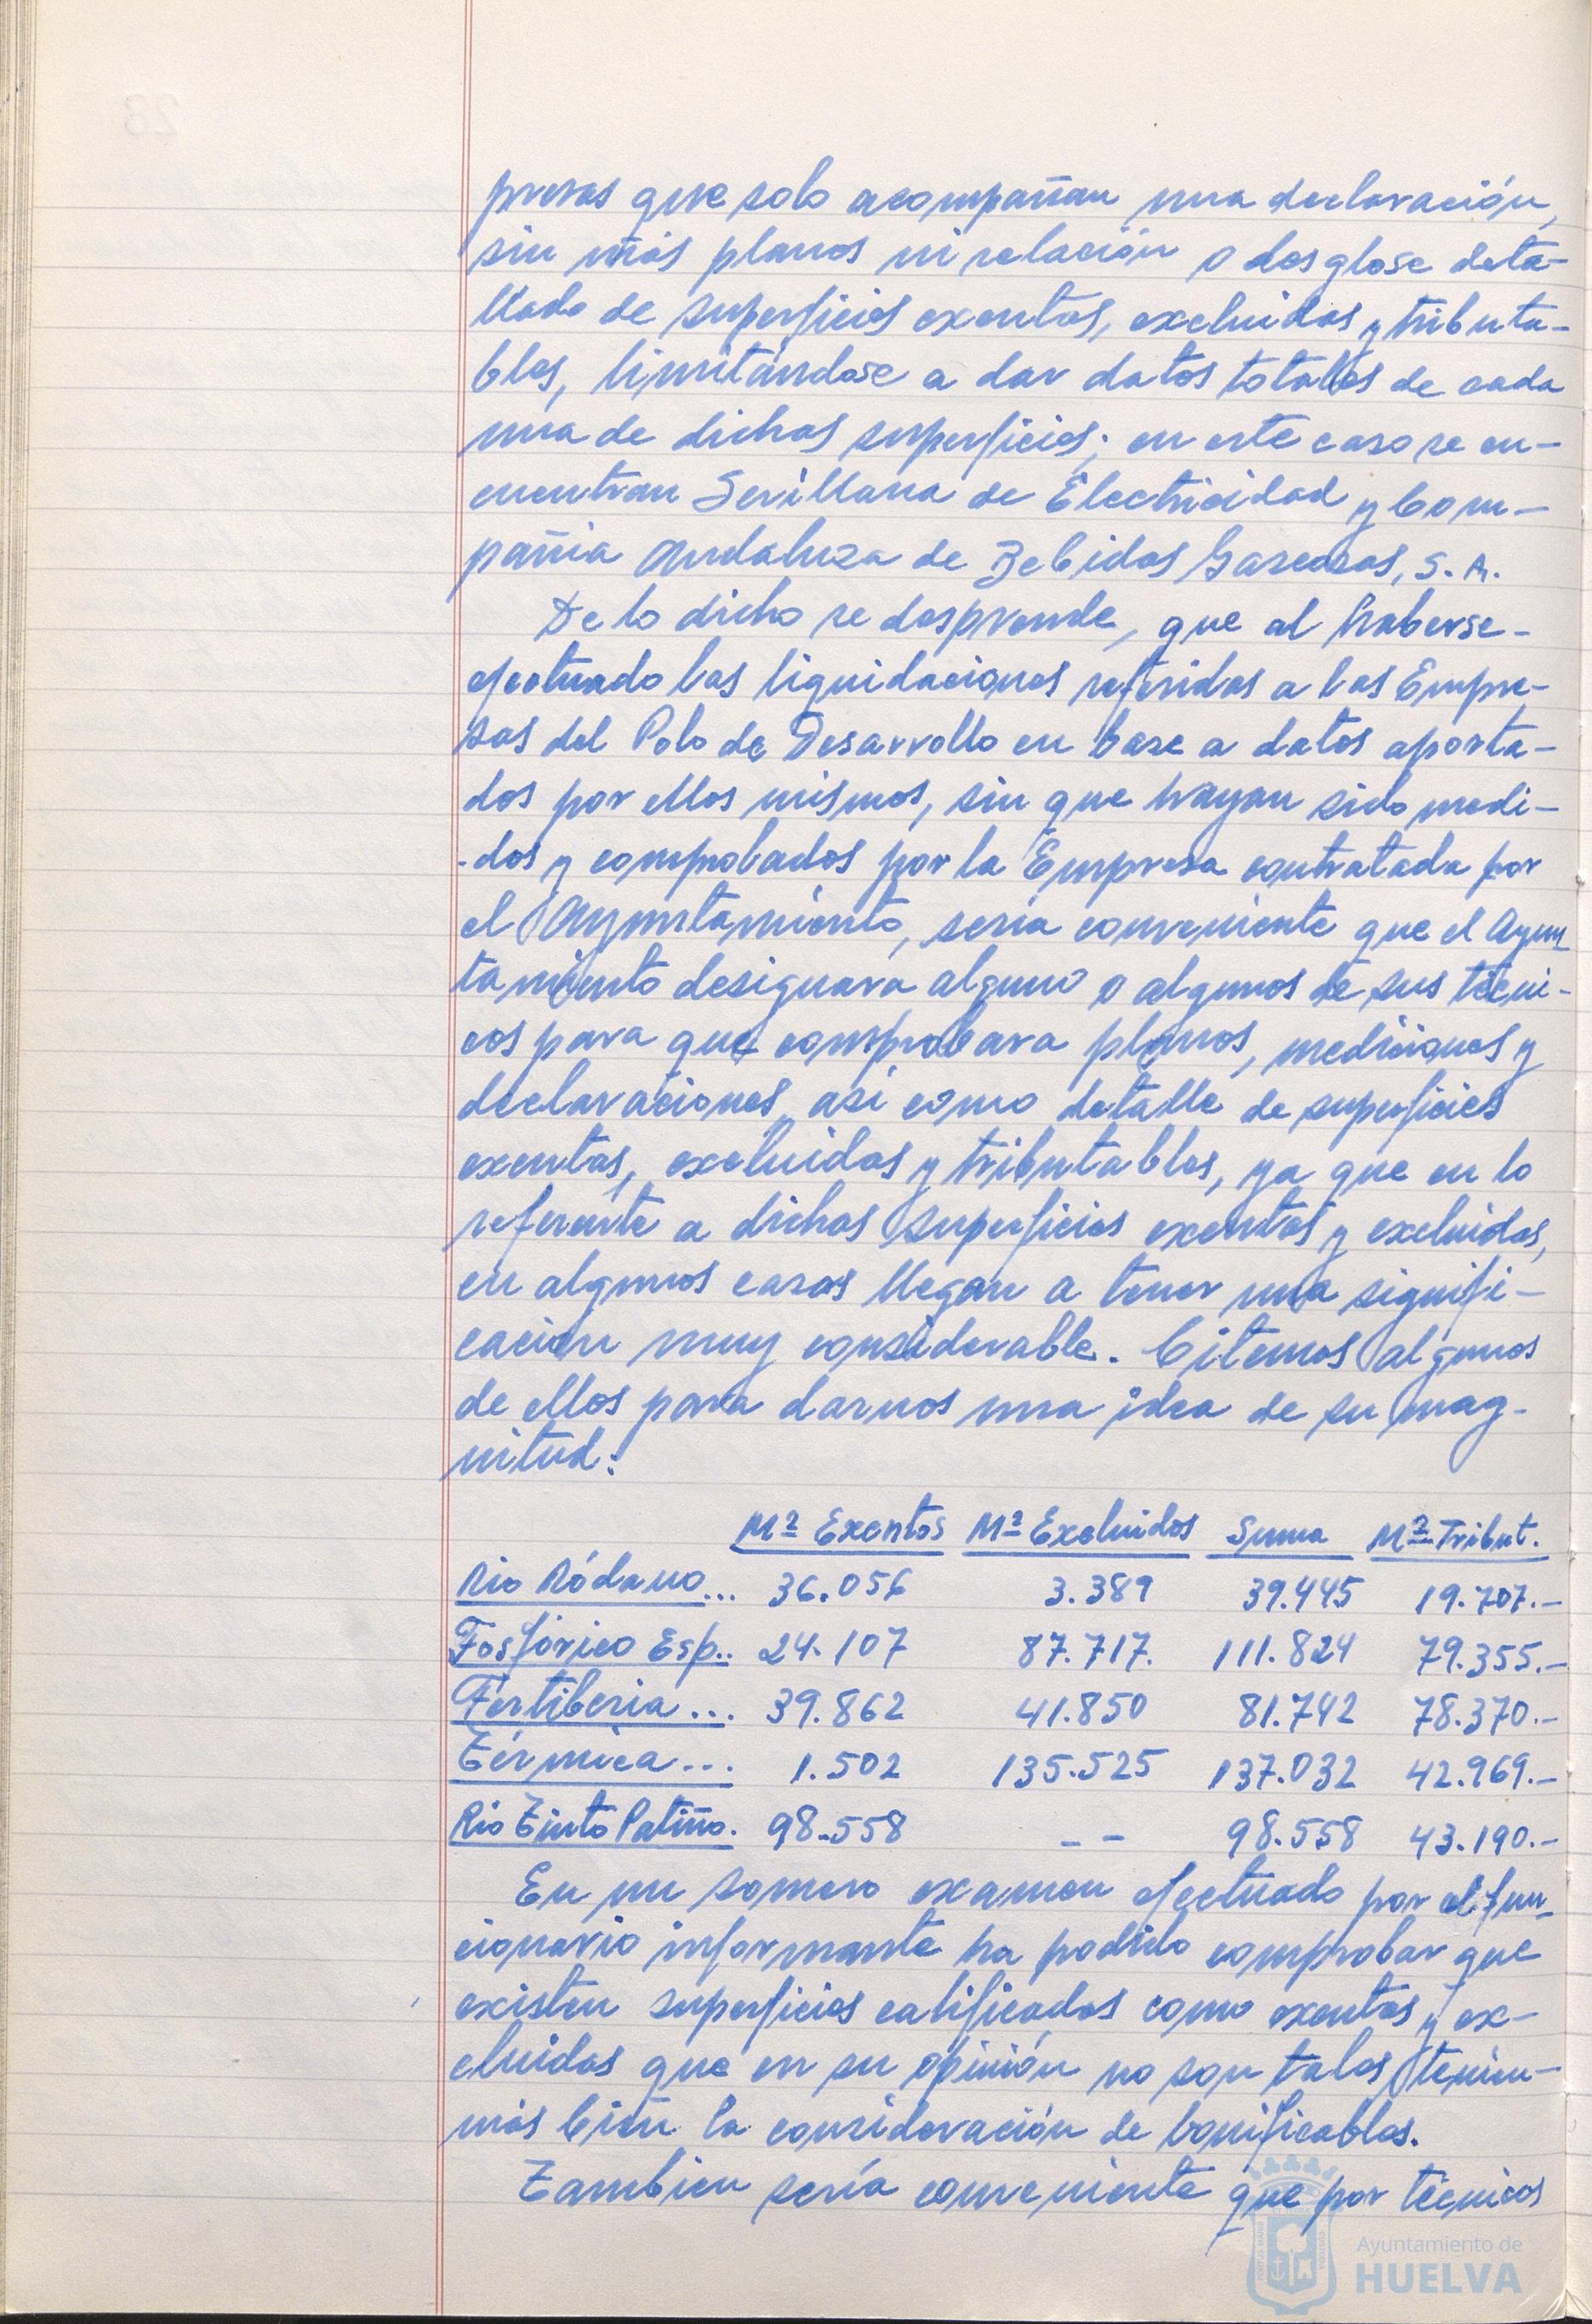 presas que solo acompañan una declaración,
sin más planos ni relación o desglose deta-
llado de superficies exentas, excluidas y tributa-
bles, limitándose a dar datos totales de cada
una de dichas superficies; en este caso se en-
cuentran Sevillana de Electricidad y Com-
pañia Andaluza de Bebidas Gaseosas, S. A.
De lo dicho se desprende, que al haberse-
efectuado las liquidaciones referidas a las Empre-
sas del Polo de Desarrollo en base a datos aporta-
dos por ellos mismos, sin que hayan sido medi-
-dos y comprobados por la Empresa contratada por
el Ayuntamiento, sería conveniente que el Ayun
tamiento designara alguno o algunos de sus técni-
cos para que comprobara planos, mediciones y
declaraciones, así como detalle de superficies
exentas, excluidas y tributables, ya que en lo
referente a dichas superficies exentas y excluidas,
en algunos casos llegan a tener una signifi-
cación muy considerable. Citemos algunos
de ellos para darnos una idea de su mag-
nitud:
M² Exentos M² Excluidos Suma M² Tribut.
Rio Ródano... 36.056 3.389 39.445 19.707.-
Fosfórico Esp.. 24.107 87.717. 111.824 79.355.-
Fertiberia... 39.862 41.850 81.742 78.370.-
Térmica... 1.502 135.525 137.032 42.969.-
Rio Tinto Patiño. 98.558 -- 98.558 43.190.-
En un somero examen efectuado por el fun-
cionario informante ha podido comprobar que
existen superficies calificadas como exentas y ex-
cluidas que en su opinión no son tales tenien-
más bien la consideración de bonificables.
Tambien sería conveniente que por técnicos
Ayuntamiento de
HUELVA
28